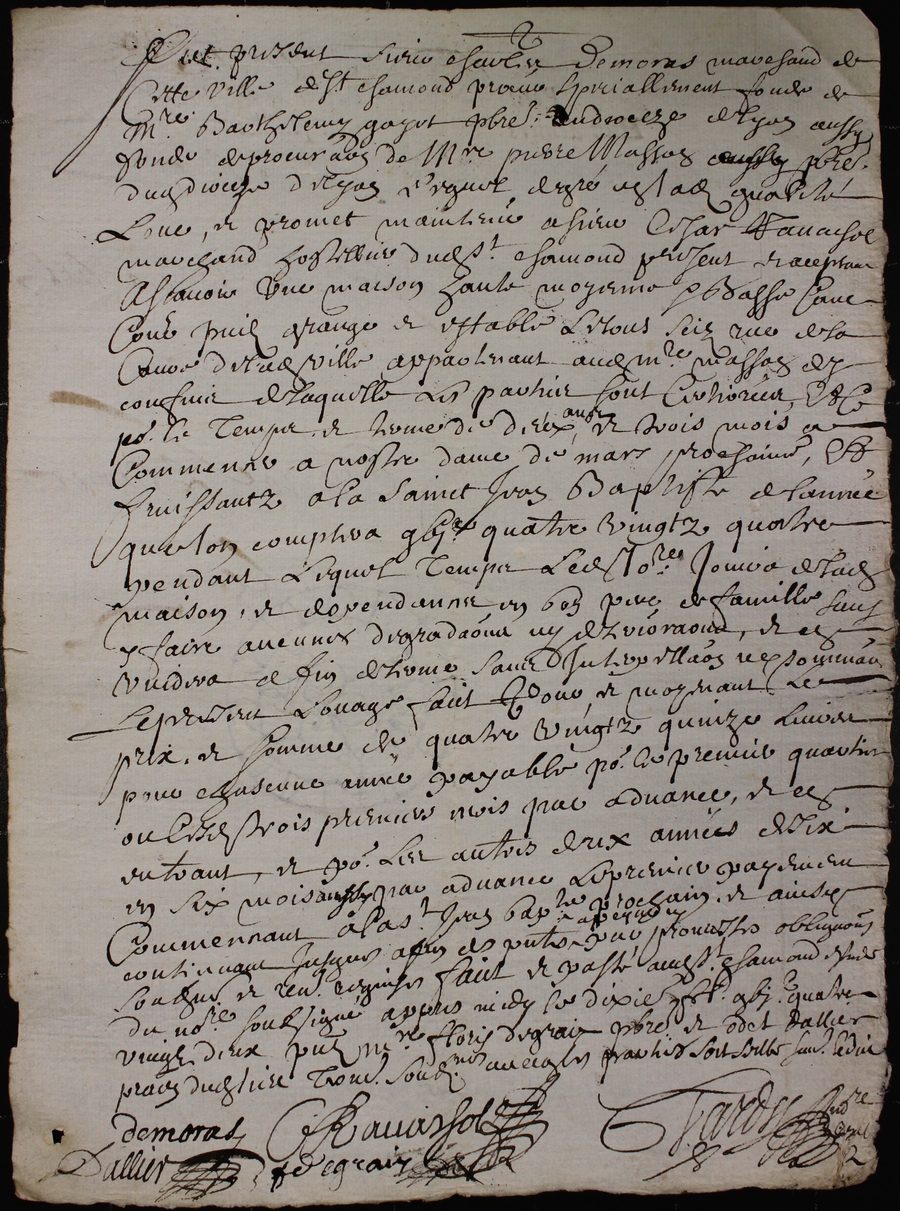 Fut present sieur charles Demoras marchand de
Cette ville de St chamond procur specialement fondé de
Mre Barthelemy gayot pbre du dioceze de lyon aussy
fonde de procuraõn de Mre pierre Massas pbre
dud diocese de lyon lequel de gré esd qualité
Loue, et promet maintenir a sieur Cesar Ravachol
marchand hostellier dud St chamond present et acceptant
Ascavoir Une maison haute moyenne & Basse Cave
Cour puis grange et estable Le tout scis rue de la
de lad ville appartenant aud mre massas
confins de laquelle Les parties sont Certiorées, &Ce
por le Temps et terme de deux ans et trois mois
Commence a nostre dame de mars prochaine, Et
finissantz a la Sainct Jean Baptiste de l'année
que lon comptera gbjc quatre vingtz quatre
pendant Lequel Temps Led sr Jouira de lad
maison, et dependances en bon pere de famille sans
y faire aucunes degradaõns ny deterioraõns, et
vuidera a fin de terme sans Interpellaõn ny sommaõn
Le present Louage fait pour, et moyenant Le
prix, et somme de quatre Vingtz quinze Livres
pour chascune année payable por le premier quartier
ou Lesd trois premiers mois par advance, et
entrant, et por Les autres deux années de six
en six mois aussy par advance Le premier payement
Commencant a la st Jean bapte prochain, et ainsy
continuant Jusques a fin par promesses obligaõns
et renõns fait et passé aud St chamond estude
du nore soubsigné apres midy le dixie gbjc quatre
vingt deux pnts mre floris degraix pbre et odet dallier
avec les parties soit seellé
demoras CRavachol Tardy
Dallier f degraix